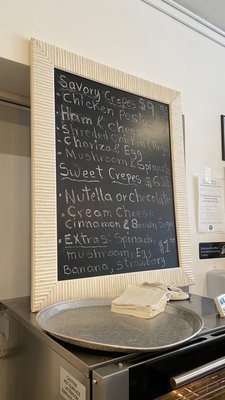 Savory Crepes $9
· Chicken Pesto
· Ham & Cheese
· Shreded Chicken
· Choriza & Egg
· Mushroom & Spinach
Sweet Crepes
· Nutella or chocolate
· Cream Cheese
cinnamon & Brown Sugar
· Extras: Spinach,
mushroom, Egg
Banana, strawberry